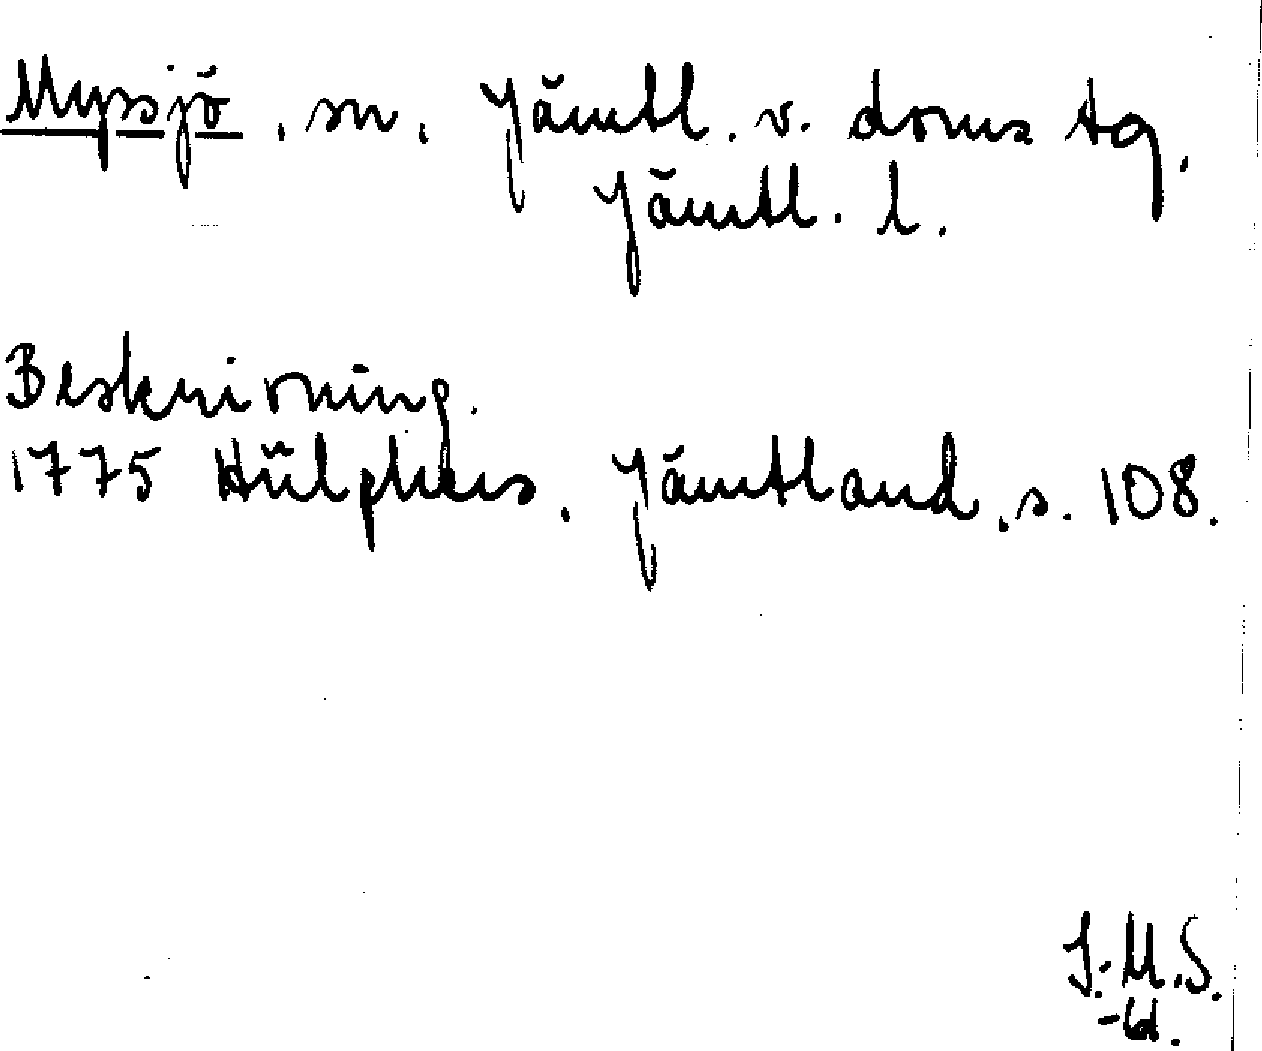 Myssjö, sn, Jämtl. v. doms tg,
Jämtl. l.
Beskrivning.
1775 Hülphers, Jämtland, s. 108.
I.M.S.
-61.